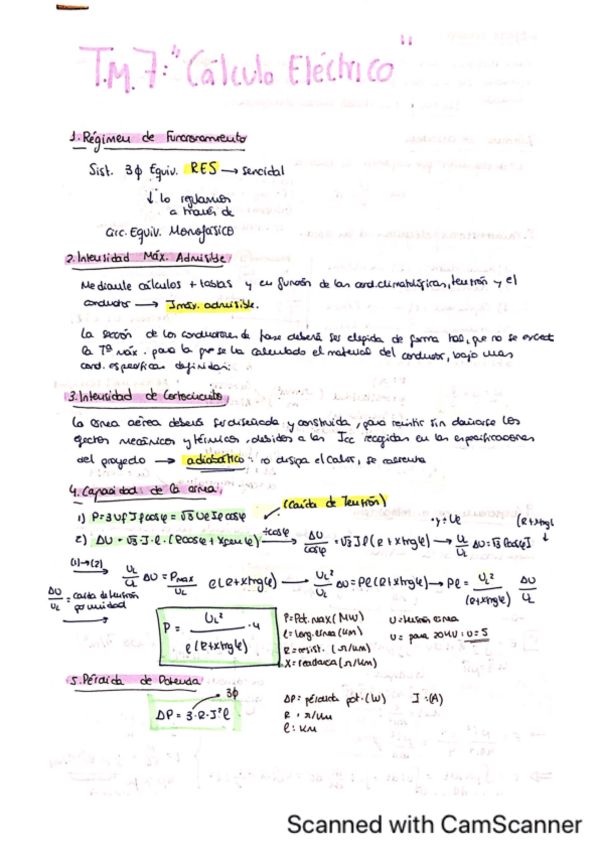 T.M.7: "Cálculo Eléctrico"
1. Régimen de Funcionamiento
Sist. 3φ Equiv. RES → senoidal
↓ lo regulamos
a través de
Circ. Equiv. Monofásico
2. Intensidad Máx. Admisible
Mediante cálculos + tablas y en función de las cond. climatológicas, tensión y el
conductor → Imáx. admisible.
La sección de los conductores de fase deberá ser elegida de forma tal, que no se exceda
la Tª máx. para la que se ha calculado el material del conductor, bajo unas
cond. específicas definidas.
3. Intensidad de Cortocircuito
La línea aérea deberá ser diseñada y construida, para resistir sin dañarse los
efectos mecánicos y térmicos, debidos a las Icc recogidas en las especificaciones
del proyecto → adiabático: no disipa el calor, se calienta
4. Capacidad de la línea
(Caída de Tensión)
1) P=3 Uf If cosφ = √3 Ul Il cosφ
2) ΔU = √3·I·l·(Rcosφ + Xsenφ) → ΔU/cosφ = √3 I l (R + Xtgφ) →
(1)→(2)
ΔU/UL = caída de tensión por unidad
UL/UL ΔU = PMAX/UL l(R+Xtgφ) → UL²/UL ΔU = Pl(R+Xtgφ) → Pl = UL²/(R+Xtgφ) ΔU/UL
P = UL²/l(R+Xtgφ) · u
P=Pot. max (MW)
l=long. línea (km)
R=resist. (Ω/km)
X=reactancia (Ω/km)
U=tensión línea
u = para 20kV: u=5
5. Pérdida de Potencia
3φ
ΔP = 3·R·I²·l
ΔP= pérdida pot. (W) I:(A)
R: Ω/km
l: km
Scanned with CamScanner